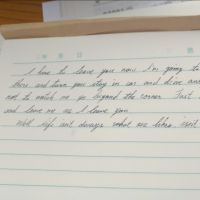 I have to leave you now I'm going to
there and turn you stay in car and drive
not to watch me go beyond the corner Just
and leave me as I leave you.
Well life isn't always what one likes, isn't